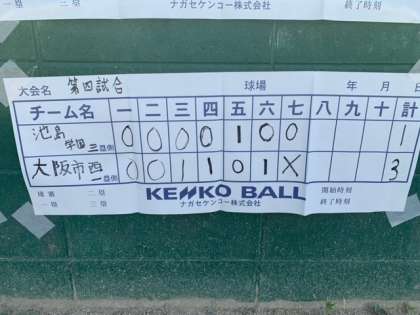 一塁 二塁 ナガセケンコー株式会社 終了時刻
大会名 第四試合 球場 年 月 日
チーム名 一 二 三 四 五 六 七 八 九 十 計
池島学園 三塁側 0 0 0 0 1 0 0 1
大阪市西 一塁側 0 0 1 1 0 1 X 3
球審 二塁 KENKO BALL 開始時刻
一塁 三塁 ナガセケンコー株式会社 終了時刻